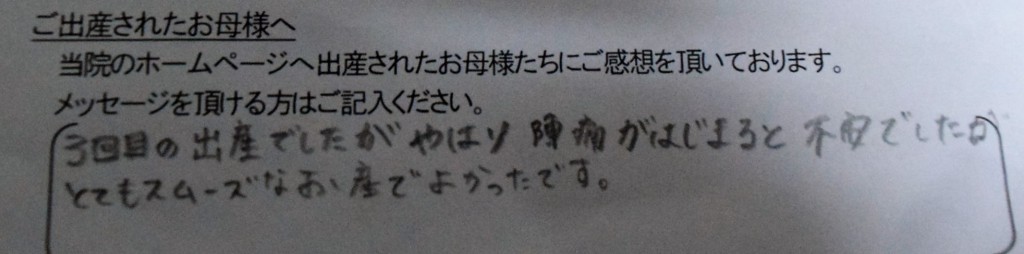 ご出産されたお母様へ
当院のホームページへ出産されたお母様たちにご感想を頂いております。
メッセージを頂ける方はご記入ください。
3回目の出産でしたがやはり陣痛がはじまると不安でしたが
とてもスムーズなお産でよかったです。